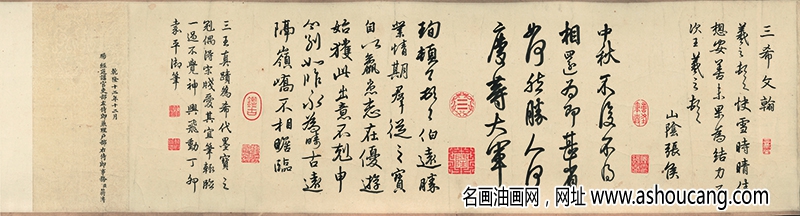 三希文翰
羲之頓首快雪時晴佳
想安善未果為結力不
次王羲之頓首
山陰張侯
中秋不復不得
相還為即甚省
如何然勝人何
慶等大軍
珣頓首頓首伯遠勝
業情期群從之寶
自以羸患志在優遊
始獲此出意不剋申
分別如昨永為疇古遠
隔嶺嶠不相瞻臨
三王真蹟為希代墨寶之
冠偶得宋牋愛其宜筆輒臨
一過不覺神興飛動丁卯
嘉平御筆
乾隆十二年十二月
賜 經筵講官吏部左侍郎兼理戶部右侍郎事務臣
名画油画网，网址 www.ashoucang.com